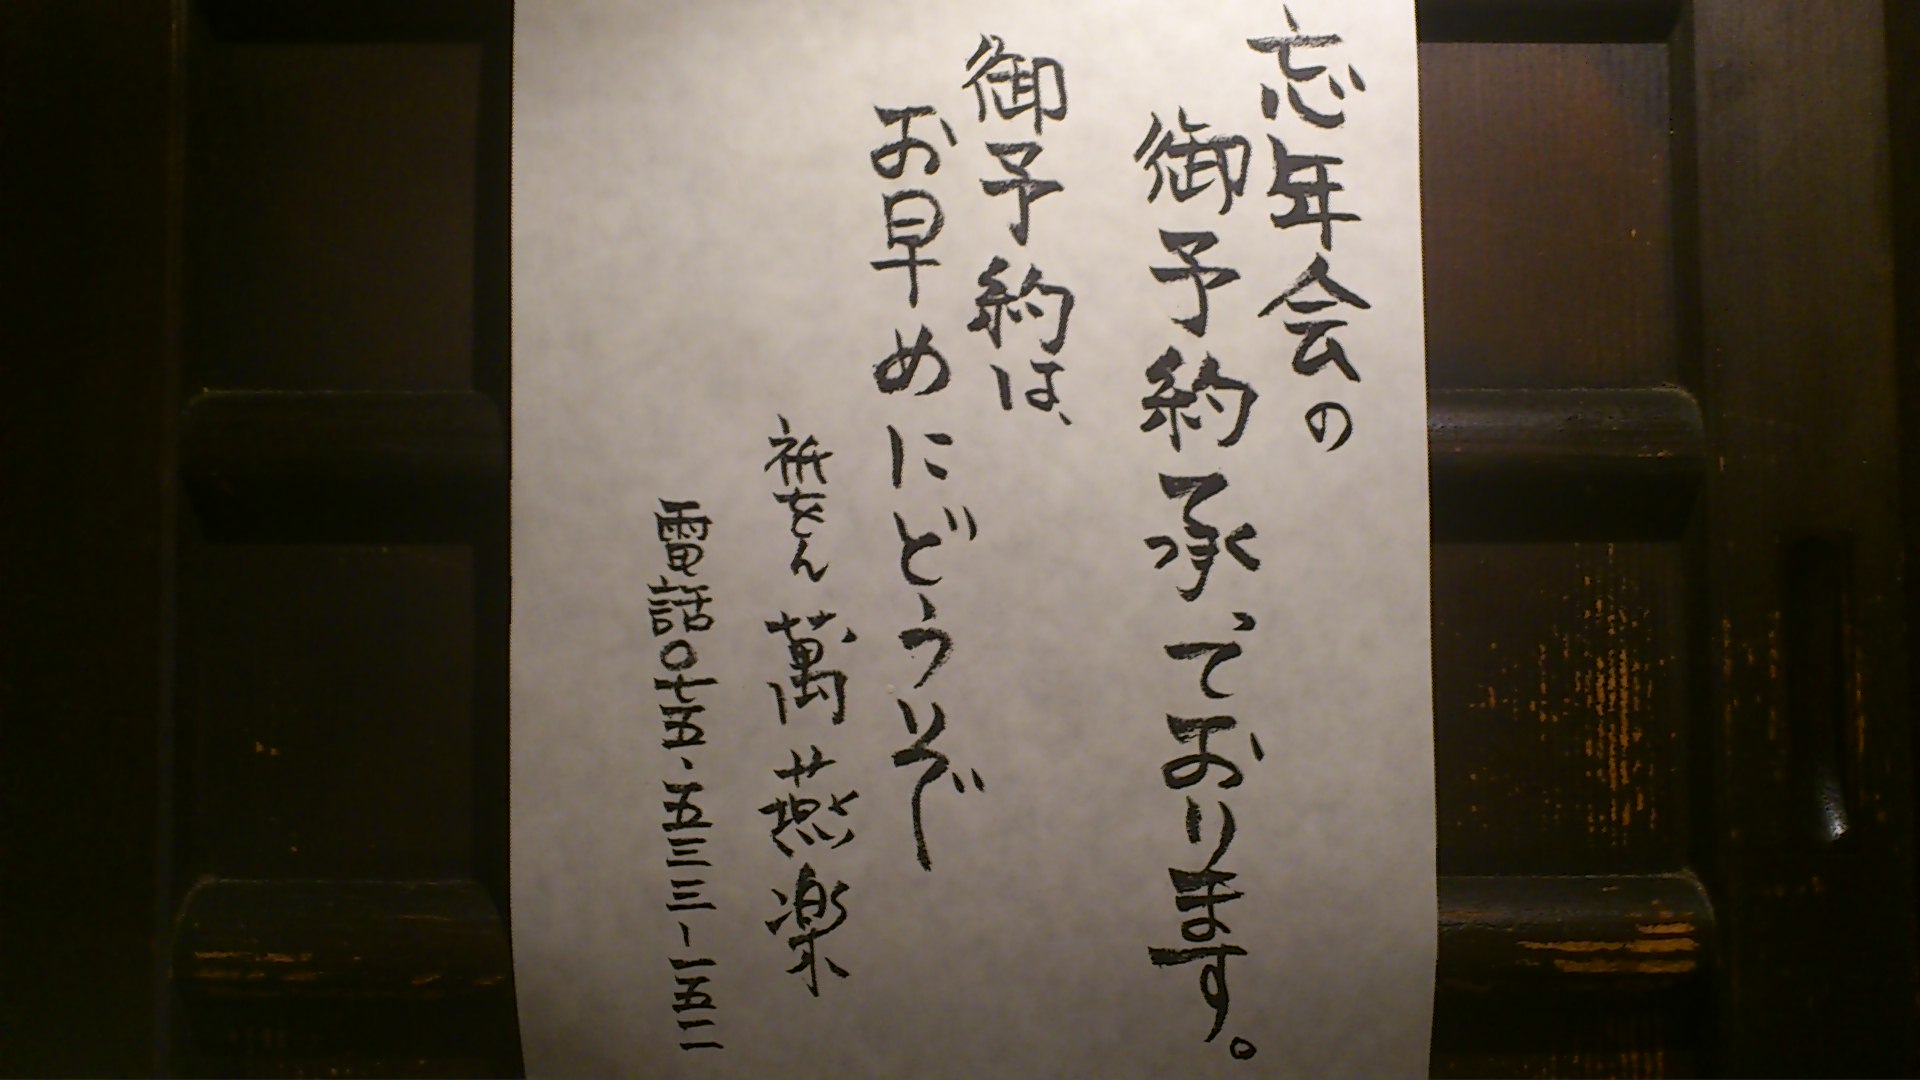 忘年会の
御予約承っております。
御予約は、
お早めにどうぞ
祇をん 萬燕楽
電話〇七五・五三三-一五一一